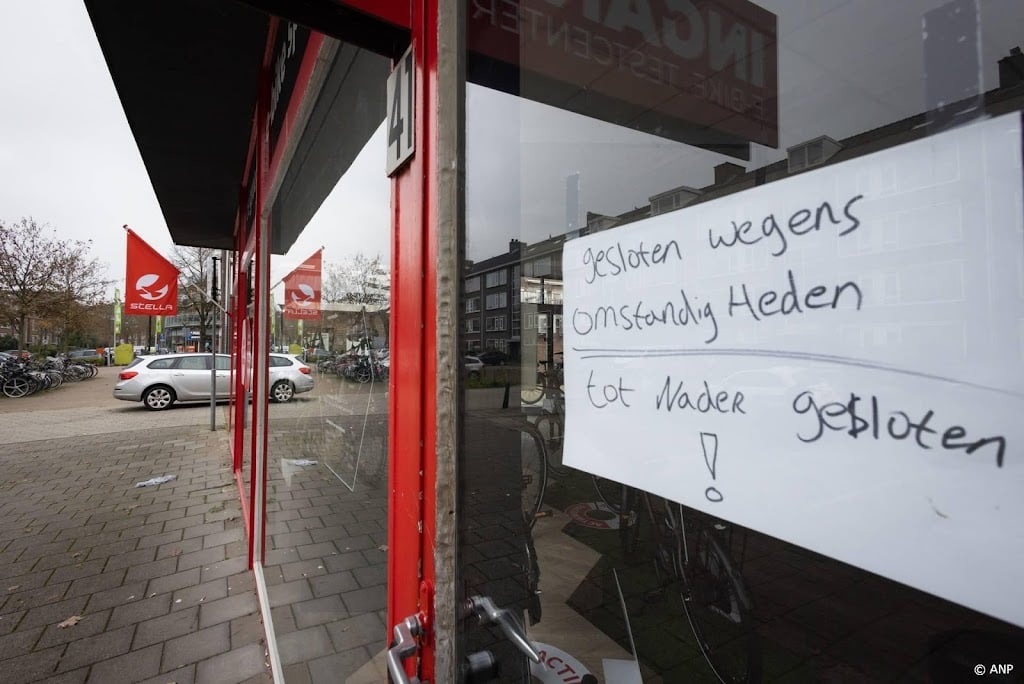 gesloten wegens
omstandigHeden
tot Nader gesloten
!
41
STELLA
INGAN
E-BIKE TESTCENTER
ACTI
© ANP